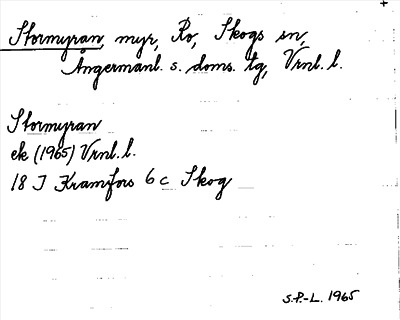 Stormyran, myr, Ro, Skogs sn,
Ångermanl. s. doms. tg, Vrnl. l.
Stormyran
ek (1965) Vrnl. l.
18 J Kramfors 6 c Skog
S.P.-L. 1965